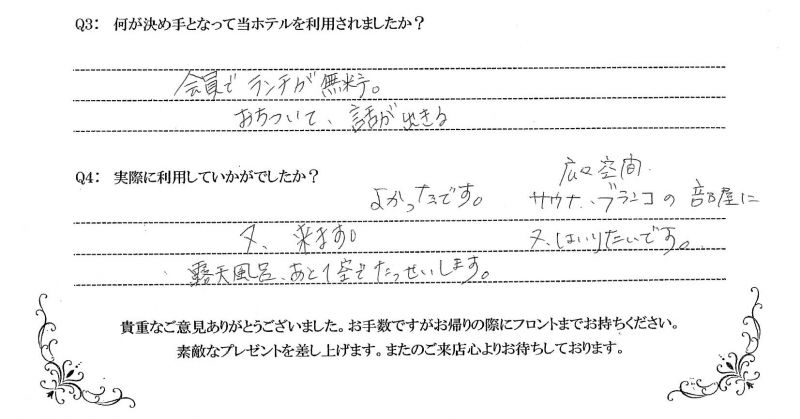 Q3: 何が決め手となって当ホテルを利用されましたか？
会員で ランチが 無料。
おちついて、話ができる
Q4: 実際に利用していかがでしたか？
よかったです。
又、来ます。
広々空間.
サウナ、ブランコの部屋に
又、はいりたいです。
露天風呂、あと1室でたっせいします。
貴重なご意見ありがとうございました。お手数ですがお帰りの際にフロントまでお持ちください。
素敵なプレゼントを差し上げます。またのご来店心よりお待ちしております。